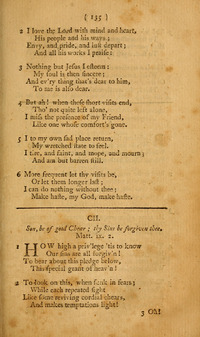 ( 135 )
2 I love the Lord with mind and heart,
His people and his ways ;
Envy, and pride, and lust depart ;
And all his works I praise :
3 Nothing but Jesus I esteem :
My soul is then sincere ;
And ev'ry thing that's dear to him,
To me is also dear.
4 But ah ! when these short visits end,
Tho' not quite left alone,
I miss the presence of my Friend,
Like one whose comfort's gone.
5 I to my own sad place return,
My wretched state to feel.
I tire, and faint, and mope, and mourn ;
And am but barren still.
6 More frequent let thy visits be,
Or let them longer last ;
I can do nothing without thee ;
Make haste, my God, make haste.
CII.
Son, be of good Cheer ; thy Sins be forgiven thee.
Matt. ix. 2.
1 HOW high a priv'lege 'tis to know
Our sins are all forgiv'n !
To bear about this pledge below,
This special grant of heav'n !
2 To look on this, when sunk in fears ;
While each repeated sight
Like some reviving cordial cheers,
And makes temptations light !
3 Oh !